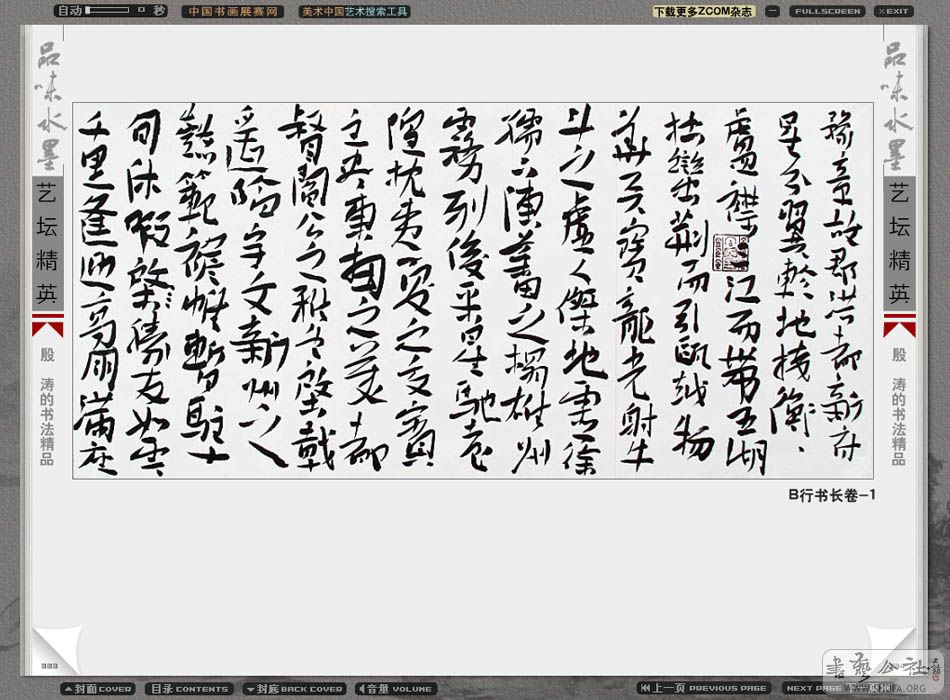 自动 秒
中国书画展赛网
美术中国艺术搜索工具
下载更多ZCOM杂志
FULLSCREEN
×EXIT
品味水墨
艺坛精英
殷 涛的书法精品
豫章故郡洪都新府
星分翼軫地接衡
廬襟江而帶五湖
控蠻荊而引甌越物
華天寶龍光射牛
斗之虛人傑地靈徐
孺下陳蕃之榻雄州
霧列俊采星馳臺
隍枕夷夏之交賓
主盡東南之美都
督閻公之雅望棨戟
遙臨宇文新州之
懿範襜帷暫駐十
旬休暇啓勝友如雲
千里逢迎高朋滿座
品味水墨
艺坛精英
殷 涛的书法精品
B行书长卷-1
封面 COVER
目录 CONTENTS
封底 BACK COVER
音量 VOLUME
上一页 PREVIOUS PAGE
NEXT PAGE
書藝公社
WWW.SHUFA.ORG